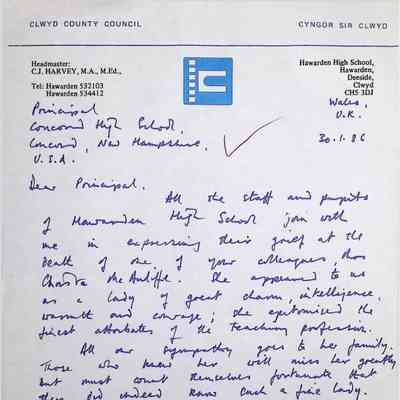 CLWYD COUNTY COUNCIL
CYNGOR SIR CLWYD
Headmaster:
C.J. HARVEY, M.A., M.Ed.,
Tel: Hawarden 532103
Hawarden 534412
Hawarden High School,
Hawarden,
Deeside,
Clwyd
CH5 3DJ
Wales,
U.K.
30.1.86
Principal
Concord High School,
Concord, New Hampshire,
U.S.A.
Dear Principal.
All the staff and pupils
of Hawarden High School join with
me in expressing their grief at the
death of one of your colleagues, Mrs
Christa McAuliffe. She appeared to us
as a lady of great charm, intelligence,
warmth and courage; she epitomised the
finest attributes of the teaching profession.
All our sympathy goes to her family.
Those who knew her will miss her greatly
but must count themselves fortunate that
they did indeed know such a fine lady.